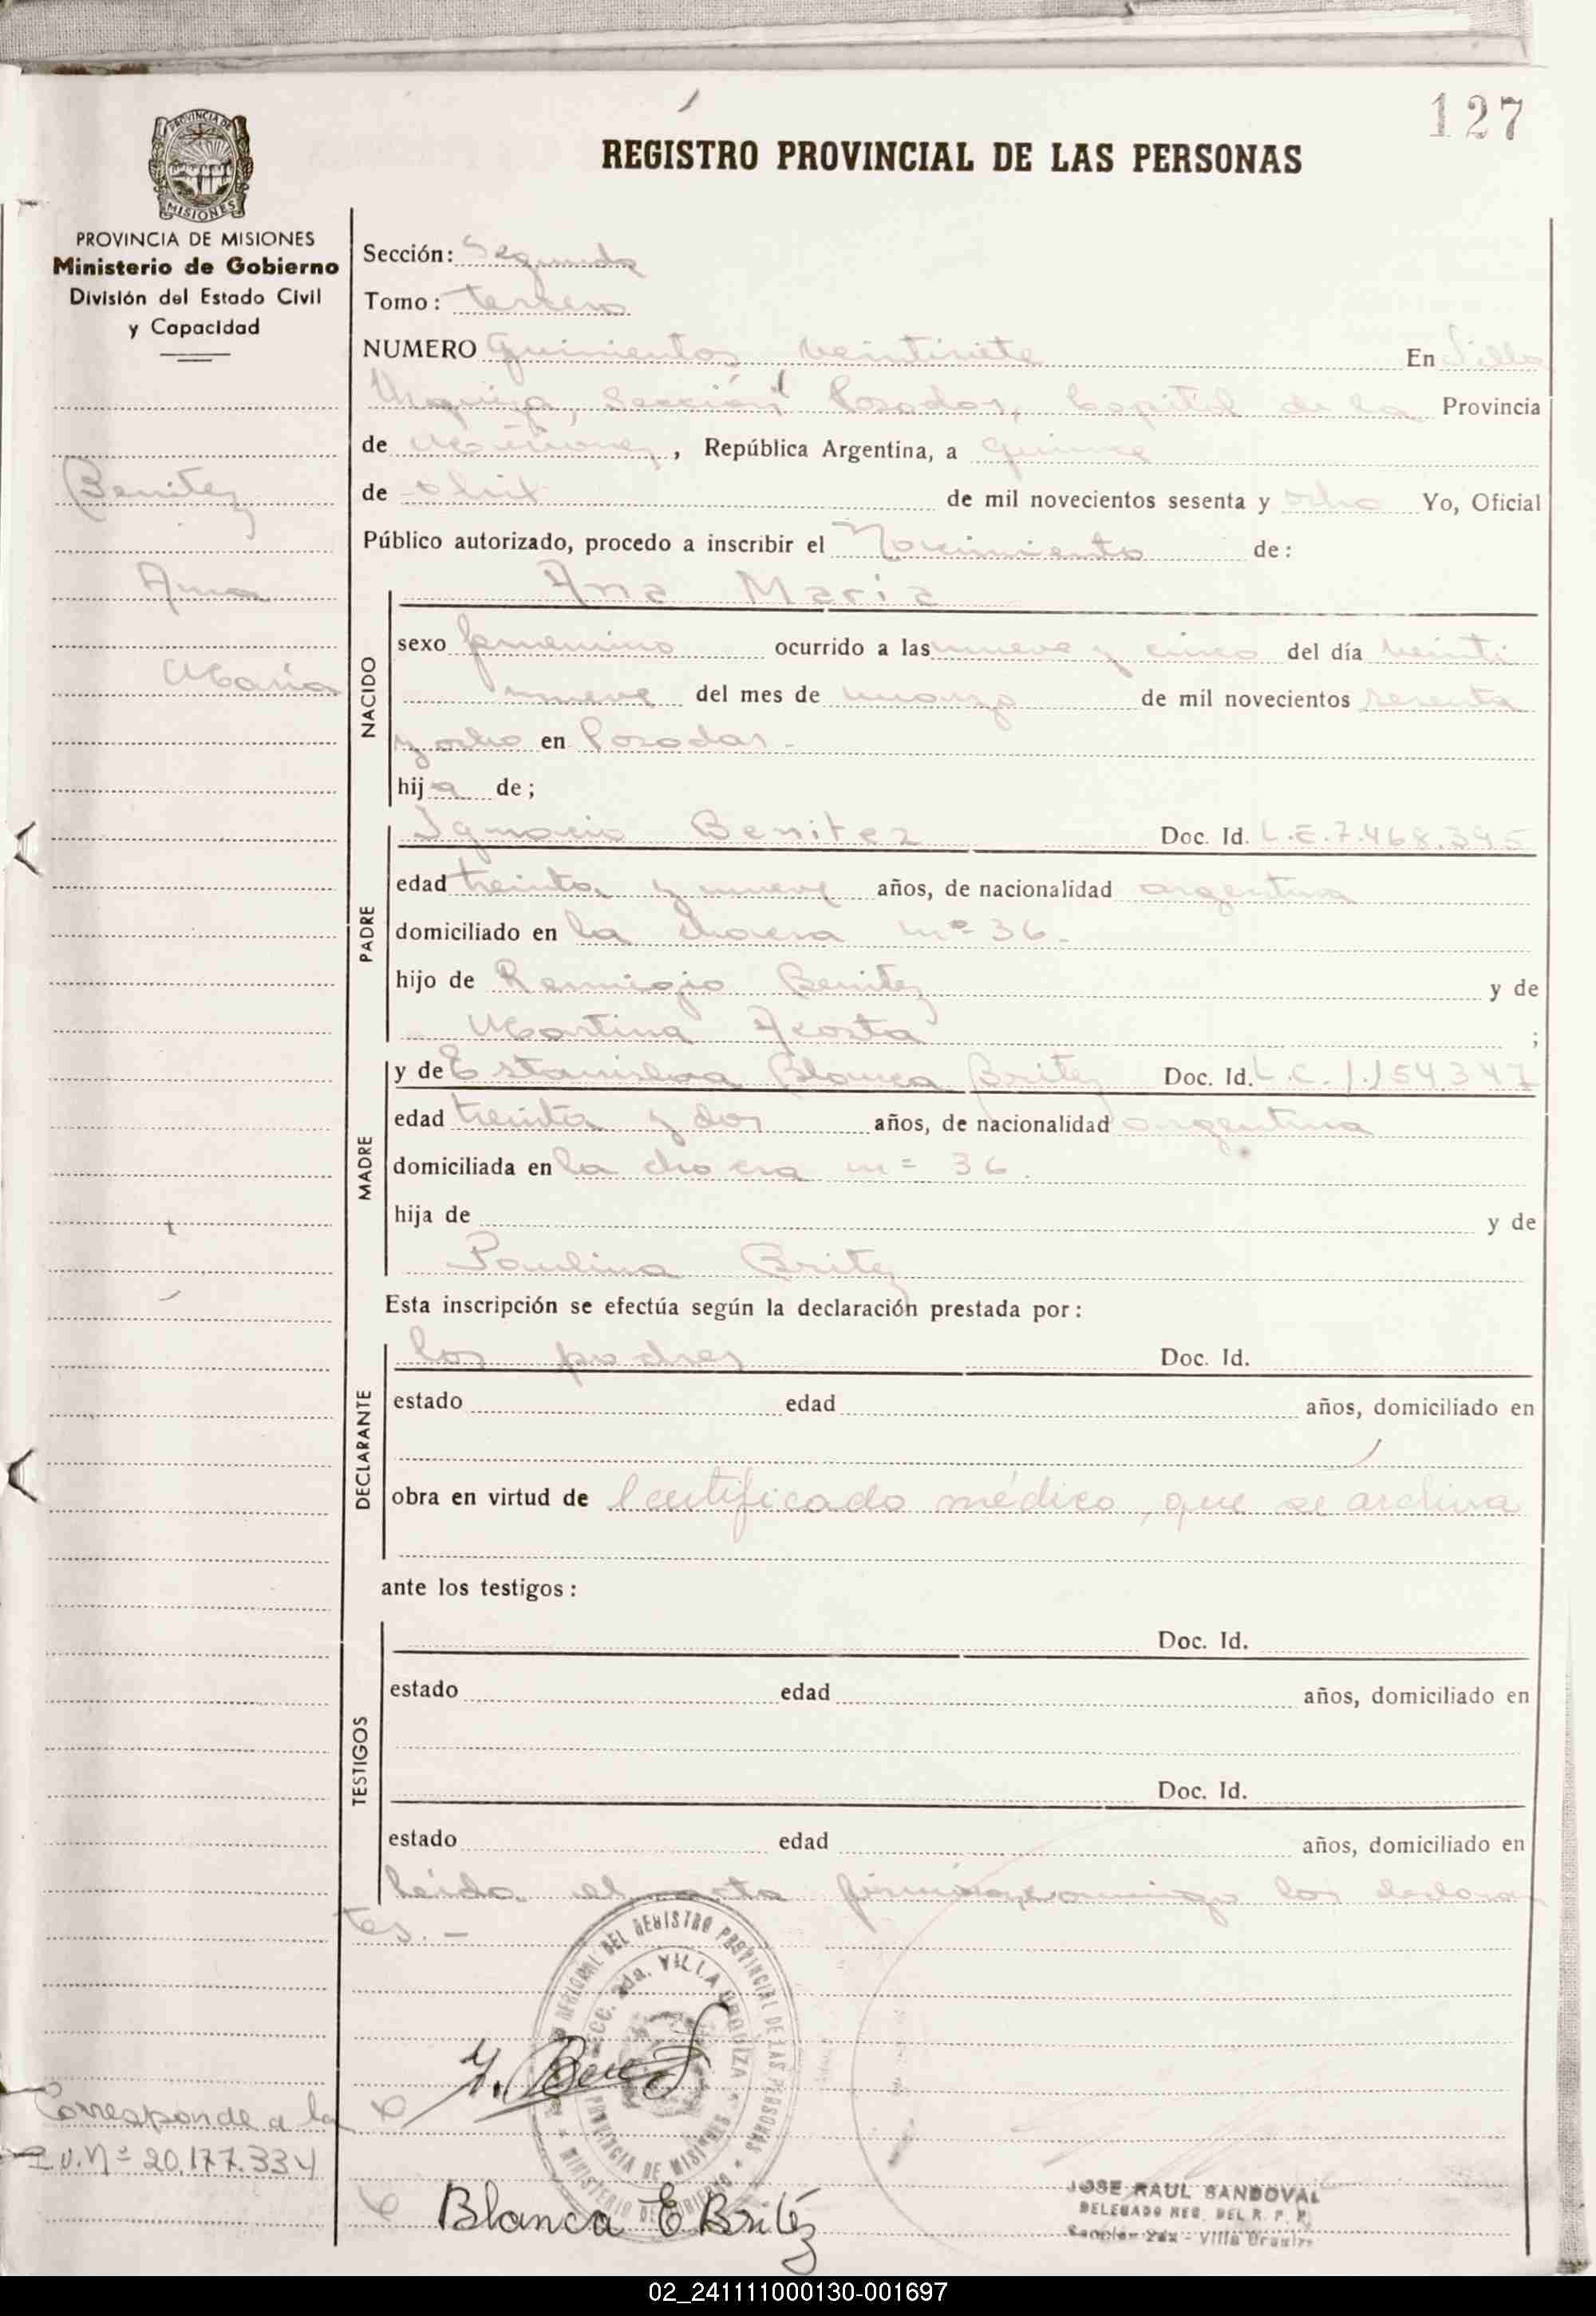 127
REGISTRO PROVINCIAL DE LAS PERSONAS
PROVINCIA DE MISIONES
PROVINCIA DE MISIONES
Ministerio de Gobierno
División del Estado Civil
y Capacidad
Benitez
Ana
Maria
Sección: Segunda
Tomo: tercero
NUMERO Quinientos veintisiete En Villa
Urquiza, Sección Posadas, Capital de la Provincia
de Misiones, República Argentina, a quince
de abril de mil novecientos sesenta y ocho Yo, Oficial
Público autorizado, procedo a inscribir el Nacimiento de:
NACIDO
Ana Maria
sexo femenino ocurrido a las nueve y cinco del día veinti
nueve del mes de marzo de mil novecientos sesenta
y ocho en Posadas.-
hija de;
PADRE
Ignacio Benitez Doc. Id. L.E.7.468.395
edad treinta y nueve años, de nacionalidad argentina
domiciliado en la chacra nº 36.
hijo de Remigio Benitez y de
Martina Acosta ;
MADRE
y de Estanislaa Blanca Britez Doc. Id. L.C.1.154.347
edad treinta y dos años, de nacionalidad argentina
domiciliada en la chacra nº 36.
hija de y de
Paulina Britez
Esta inscripción se efectúa según la declaración prestada por:
DECLARANTE
los padres Doc. Id.
estado edad años, domiciliado en
obra en virtud de certificado médico, que se archiva
ante los testigos:
TESTIGOS
Doc. Id.
estado edad años, domiciliado en
Doc. Id.
estado edad años, domiciliado en
Leída el acta los declaran
tes.-
REGIONAL DEL REGISTRO PROVINCIAL DE LAS PERSONAS
MINISTERIO DE GOBIERNO
SECC. 2da. VILLA URQUIZA
PROVINCIA DE MISIONES
Corresponde a la
Nº 20.177.334
Blanca E Britéz
JOSE RAUL SANDOVAL
DELEGADO REG. DEL R. P. P.
Sección 2da - Villa Urquiza
02_241111000130-001697